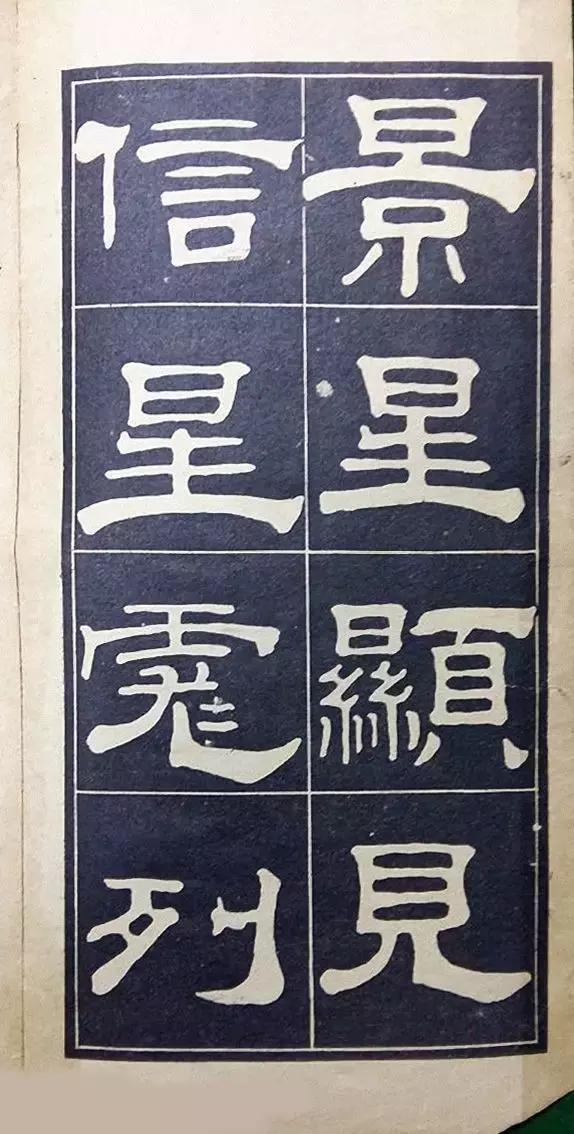 景星顯見
信星彪列